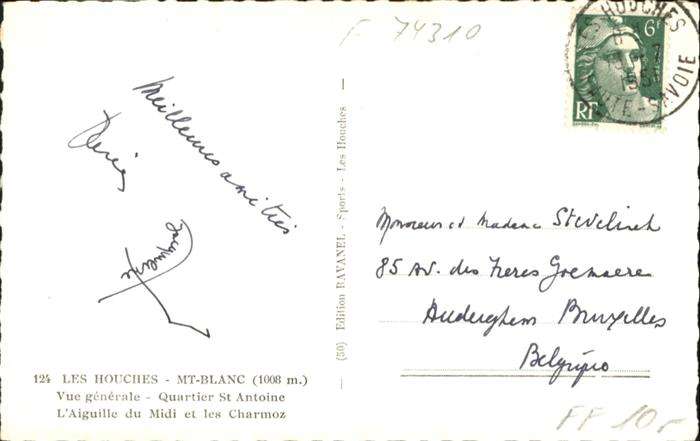 F 74310
HOUCHES
HTE-SAVOIE
6F
RF
Meilleures amitiés
Denise
Jacqueline
(50) Edition RAVANEL - Sports - Les Houches
Monsieur et Madame
85 Av. des Freres Goemaere
Auderghem Bruxelles
Belgique
124 LES HOUCHES - MT-BLANC (1008 m.)
Vue générale - Quartier St Antoine
L'Aiguille du Midi et les Charmoz
FF 10-